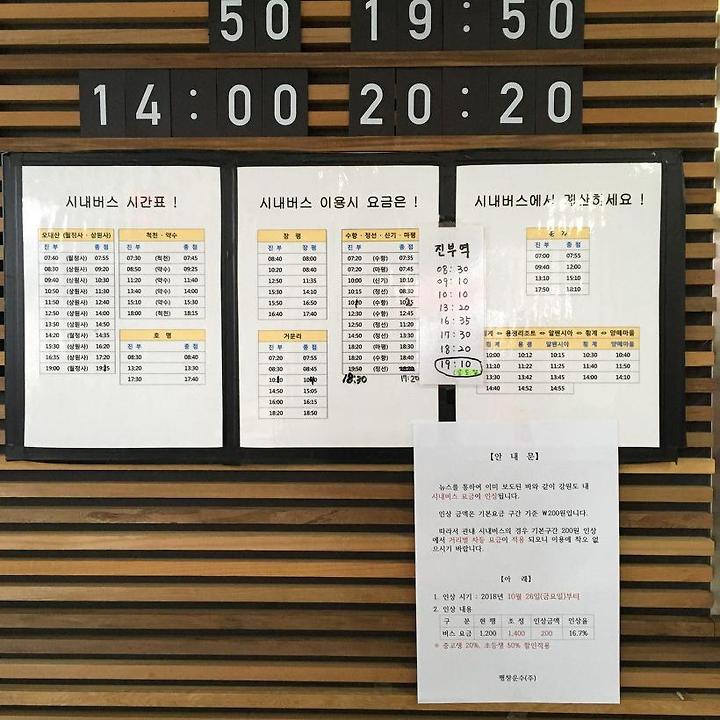 50 19:50
14:00 20:20
시내버스 시간표 !
오대산 (월정사 · 상원사)
진 부 종 점
07:40 (월정사) 07:55
08:30 (상원사) 09:20
09:40 (상원사) 10:20
10:50 (상원사) 11:30
11:50 (상원사) 12:40
12:50 (상원사) 14:00
13:50 (상원사) 14:40
14:20 (상원사) 14:55
15:30 (상원사) 16:20
16:35 (상원사) 17:20
19:00 (월정사)
척천 · 약수
진 부 종 점
07:30 (척천) 07:45
08:50 (약수) 09:25
11:20 (약수) 11:40
14:00 (약수) 14:40
15:10 (약수) 15:30
18:00 (척천) 18:15
호 명
진 부 종 점
08:30 08:40
13:20 13:40
17:30 17:40
시내버스 이용시 요금은 !
장 평
진 부 장 평
08:40 08:00
10:00 09:40
12:50 10:50
15:30 14:10
15:50 16:50
16:40 17:30
거문리
진 부 종 점
07:20 07:55
08:10 08:45
14:50 15:05
16:00 16:15
18:20 18:50
수항 · 정선 · 신기 · 마평
진 부 종 점
07:20 (수항) 07:35
07:20 (마평) 07:45
10:00 (신기) 10:10
10:15 (정선) 08:30
12:50 (정선) 11:20
18:20 (마평) 18:30
18:20 (수항) 18:40
19:50 (정선)
18:30 19:20
진부역
08:30
09:10
10:10
13:20
16:35
17:30
18:20
19:10
시내버스에서 계산하세요 !
진 부 종 점
07:10 08:00
09:40 12:00
13:10 15:10
17:50 18:10
횡계 ↔ 용평리조트 ↔ 알펜시아 ↔ 횡계 ↔ 양떼마을
횡계 용 평 알펜시아 횡계 양떼마을
10:00 10:12 10:15 10:30 10:40
11:10 11:22 11:25 11:40 11:50
13:30 13:42 13:45 14:00 14:10
14:40 14:52 14:55
【안 내 문】
뉴스를 통하여 이미 보도된 바와 같이 강원도 내
시내버스 요금이 인상됩니다.
인상 금액은 기본요금 구간 기준 ₩200원입니다.
따라서 관내 시내버스의 경우 기본구간 200원 인상
에서 거리별 차등 요금이 적용 되오니 이용에 착오 없
으시기 바랍니다.
【아 래】
1. 인상 시기 : 2018년 10월 26일(금요일)부터
2. 인상 내용
구 분 현 행 조 정 인상금액 인상율
버스 요금 1,200 1,400 200 16.7%
※ 중고생 20%, 초등생 50% 할인적용
평창운수(주)